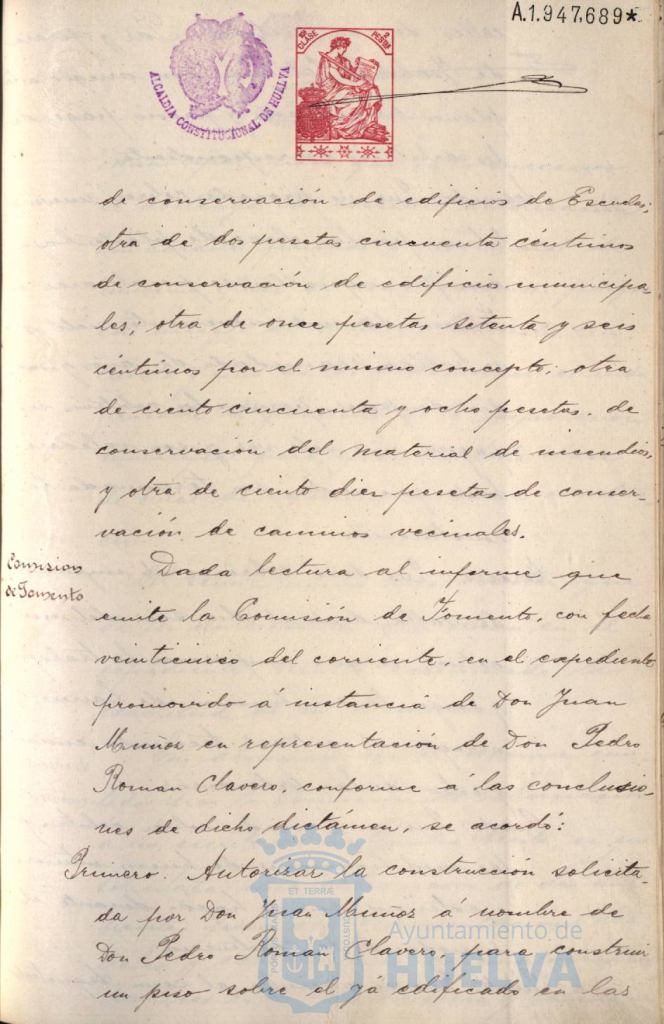 A.1.947,689*
ALCALDIA CONSTITUCIONAL DE HUELVA
10ª CLASE 2 PESETAS
de conservación de edificios de Escuelas;
otra de dos pesetas cincuenta céntimos
de conservación de edificios municipa-
les; otra de once pesetas setenta y seis
céntimos por el mismo concepto; otra
de ciento cincuenta y ocho pesetas, de
conservación del material de incendios,
y otra de ciento diez pesetas de conser-
vación de caminos vecinales.
Comision
de Fomento
Dada lectura al informe que
emite la Comisión de Fomento, con fecha
veinticinco del corriente, en el expediente
promovido á instancia de Don Juan
Muñoz en representación de Don Pedro
Roman Clavero, conforme á las conclusio-
nes de dicho dictámen, se acordó:
Primero. Autorizar la construcción solicita-
da por Don Juan Muñoz á nombre de
Don Pedro Roman Clavero, para construir
un piso sobre el yá edificado en las
ET TERRÆ
Ayuntamiento de
HUELVA